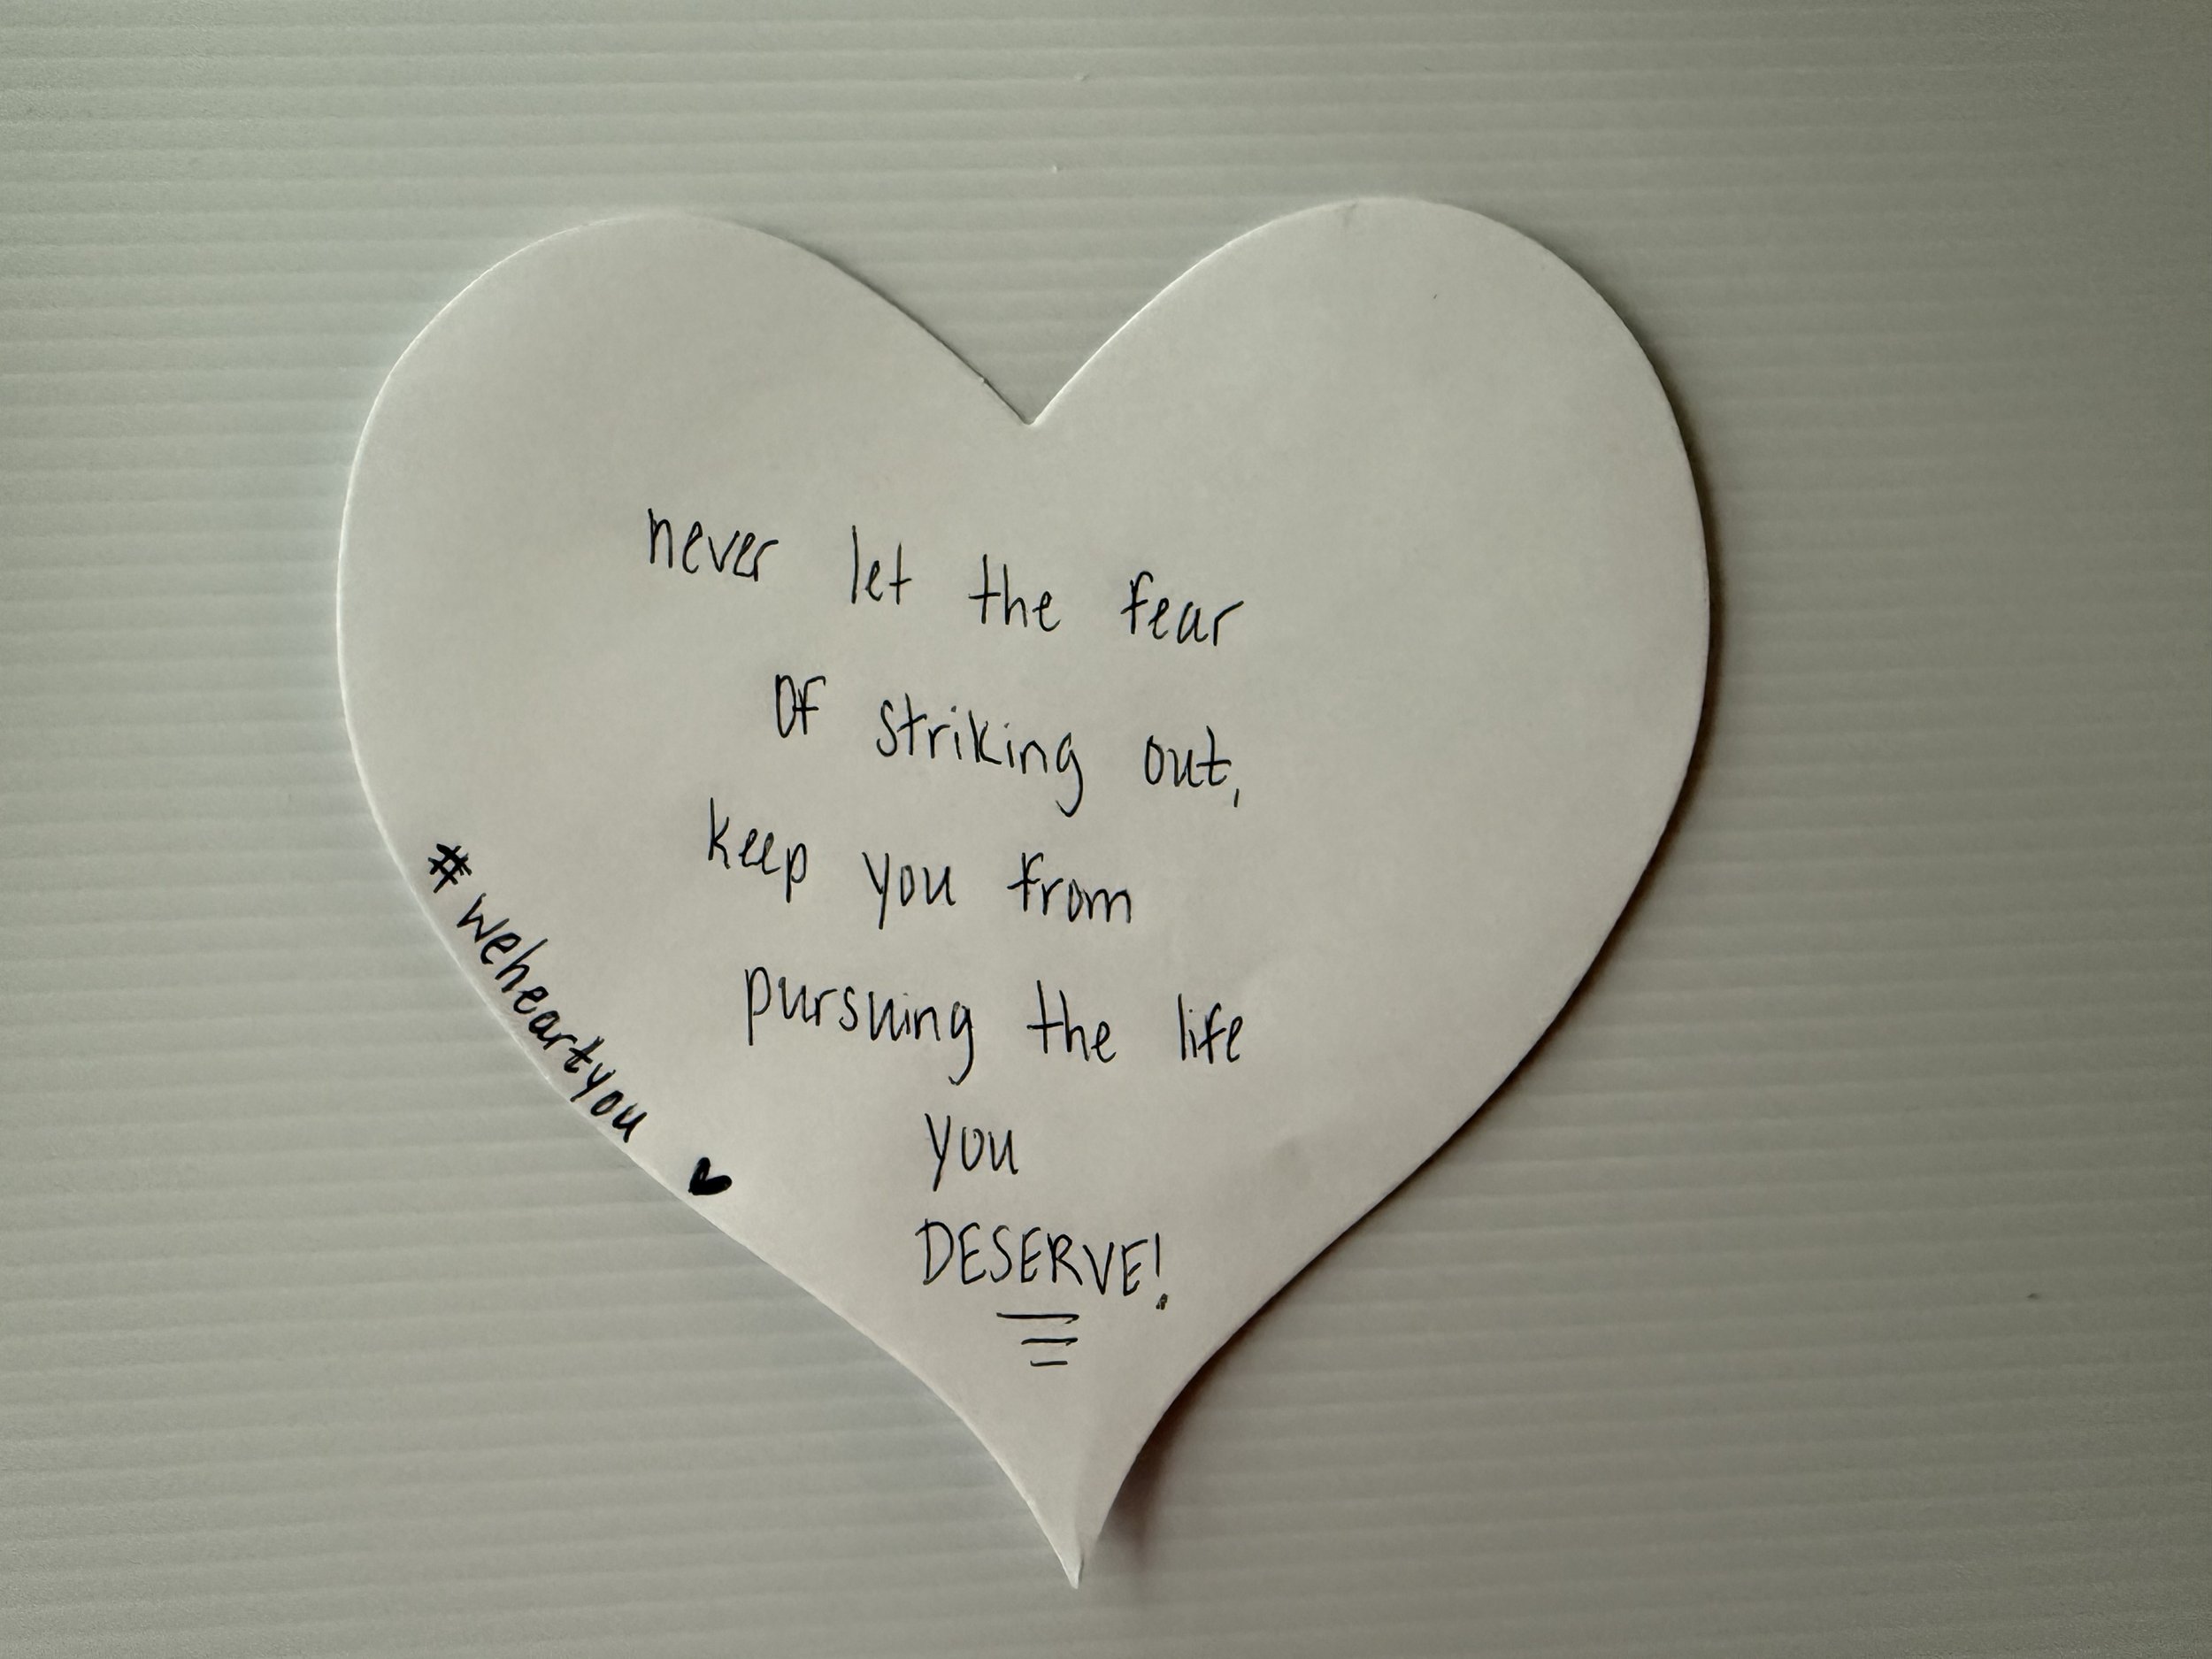 never let the fear
of striking out,
keep you from
pursuing the life
you
DESERVE!
#weheartyou